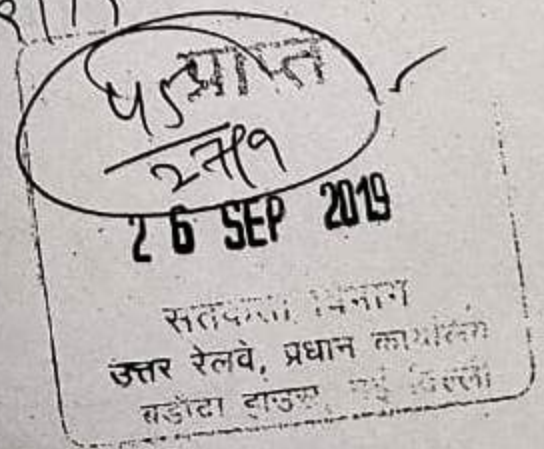 प्राप्त
27/9
26 SEP 2019
सतर्कता विभाग
उत्तर रेलवे, प्रधान कार्यालय
बड़ौदा हाउस, नई दिल्ली